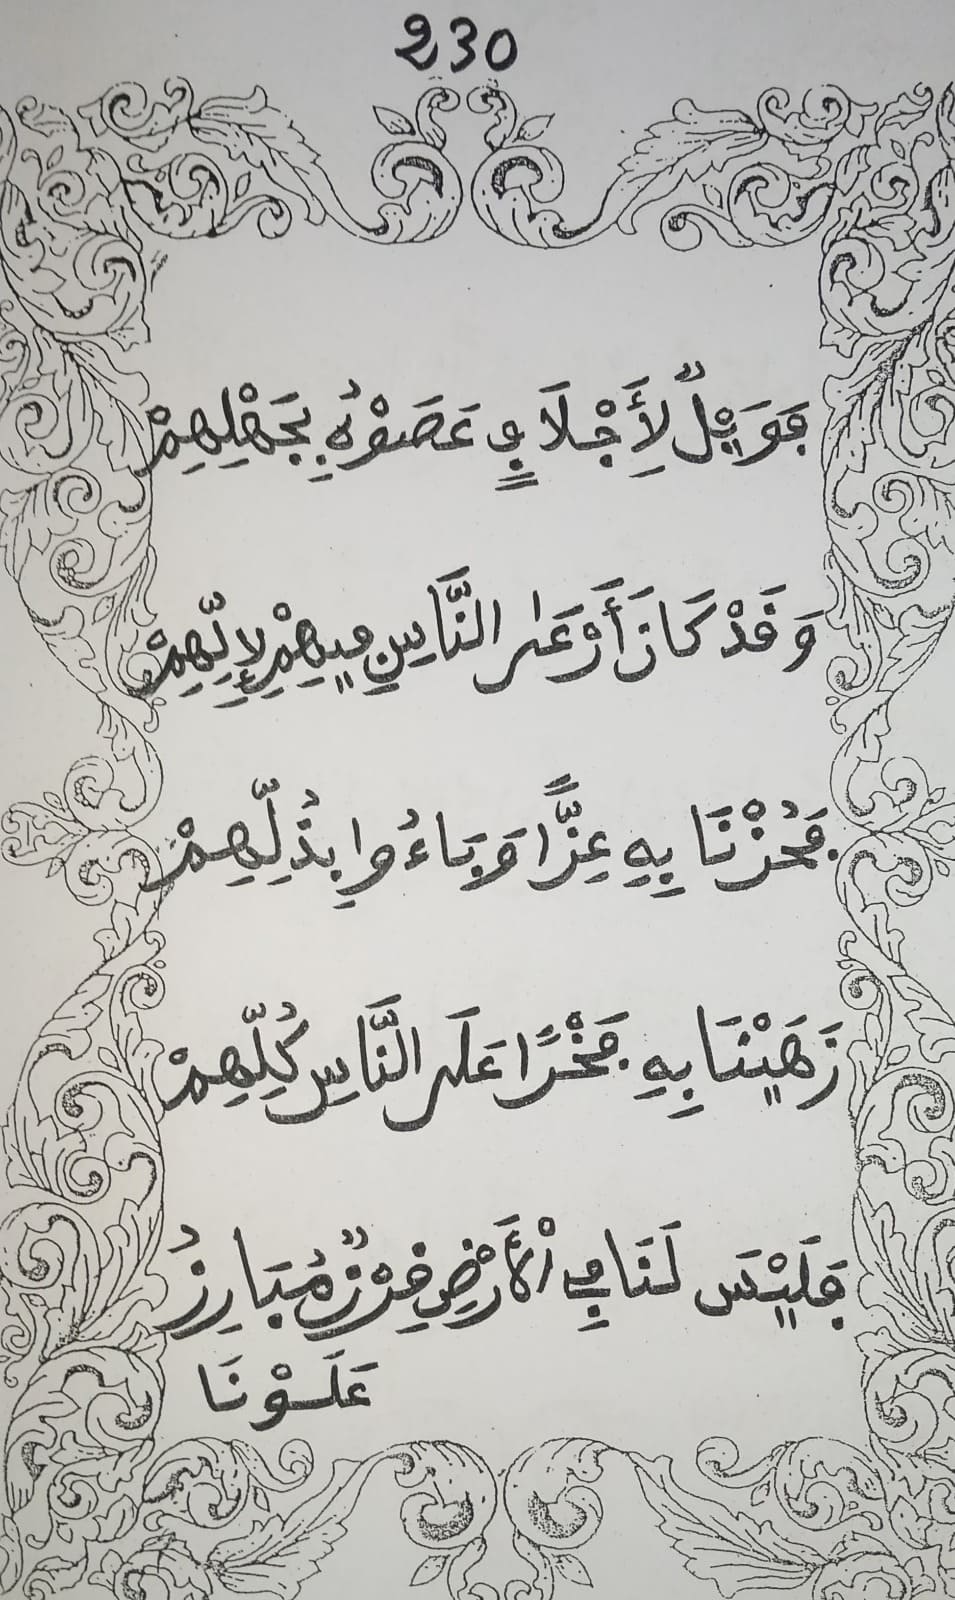 230
فَوَيْلٌ لِأَجْلَافٍ عَصَوْهُ بِجَهْلِهِمْ
وَقَدْ كَانَ أَوْعَى النَّاسِ فِيهِمْ لِإِلِّهِمْ
فَحُزْنَا بِهِ عِزًّا وَبَاءُوا بِذُلِّهِمْ
زَهَيْنَا بِهِ فَخْرًا عَلَى النَّاسِ كُلِّهِمْ
فَلَيْسَ لَنَا فِي الْأَرْضِ قِرْنٌ مُبَارِزُ
عَلَوْنَا